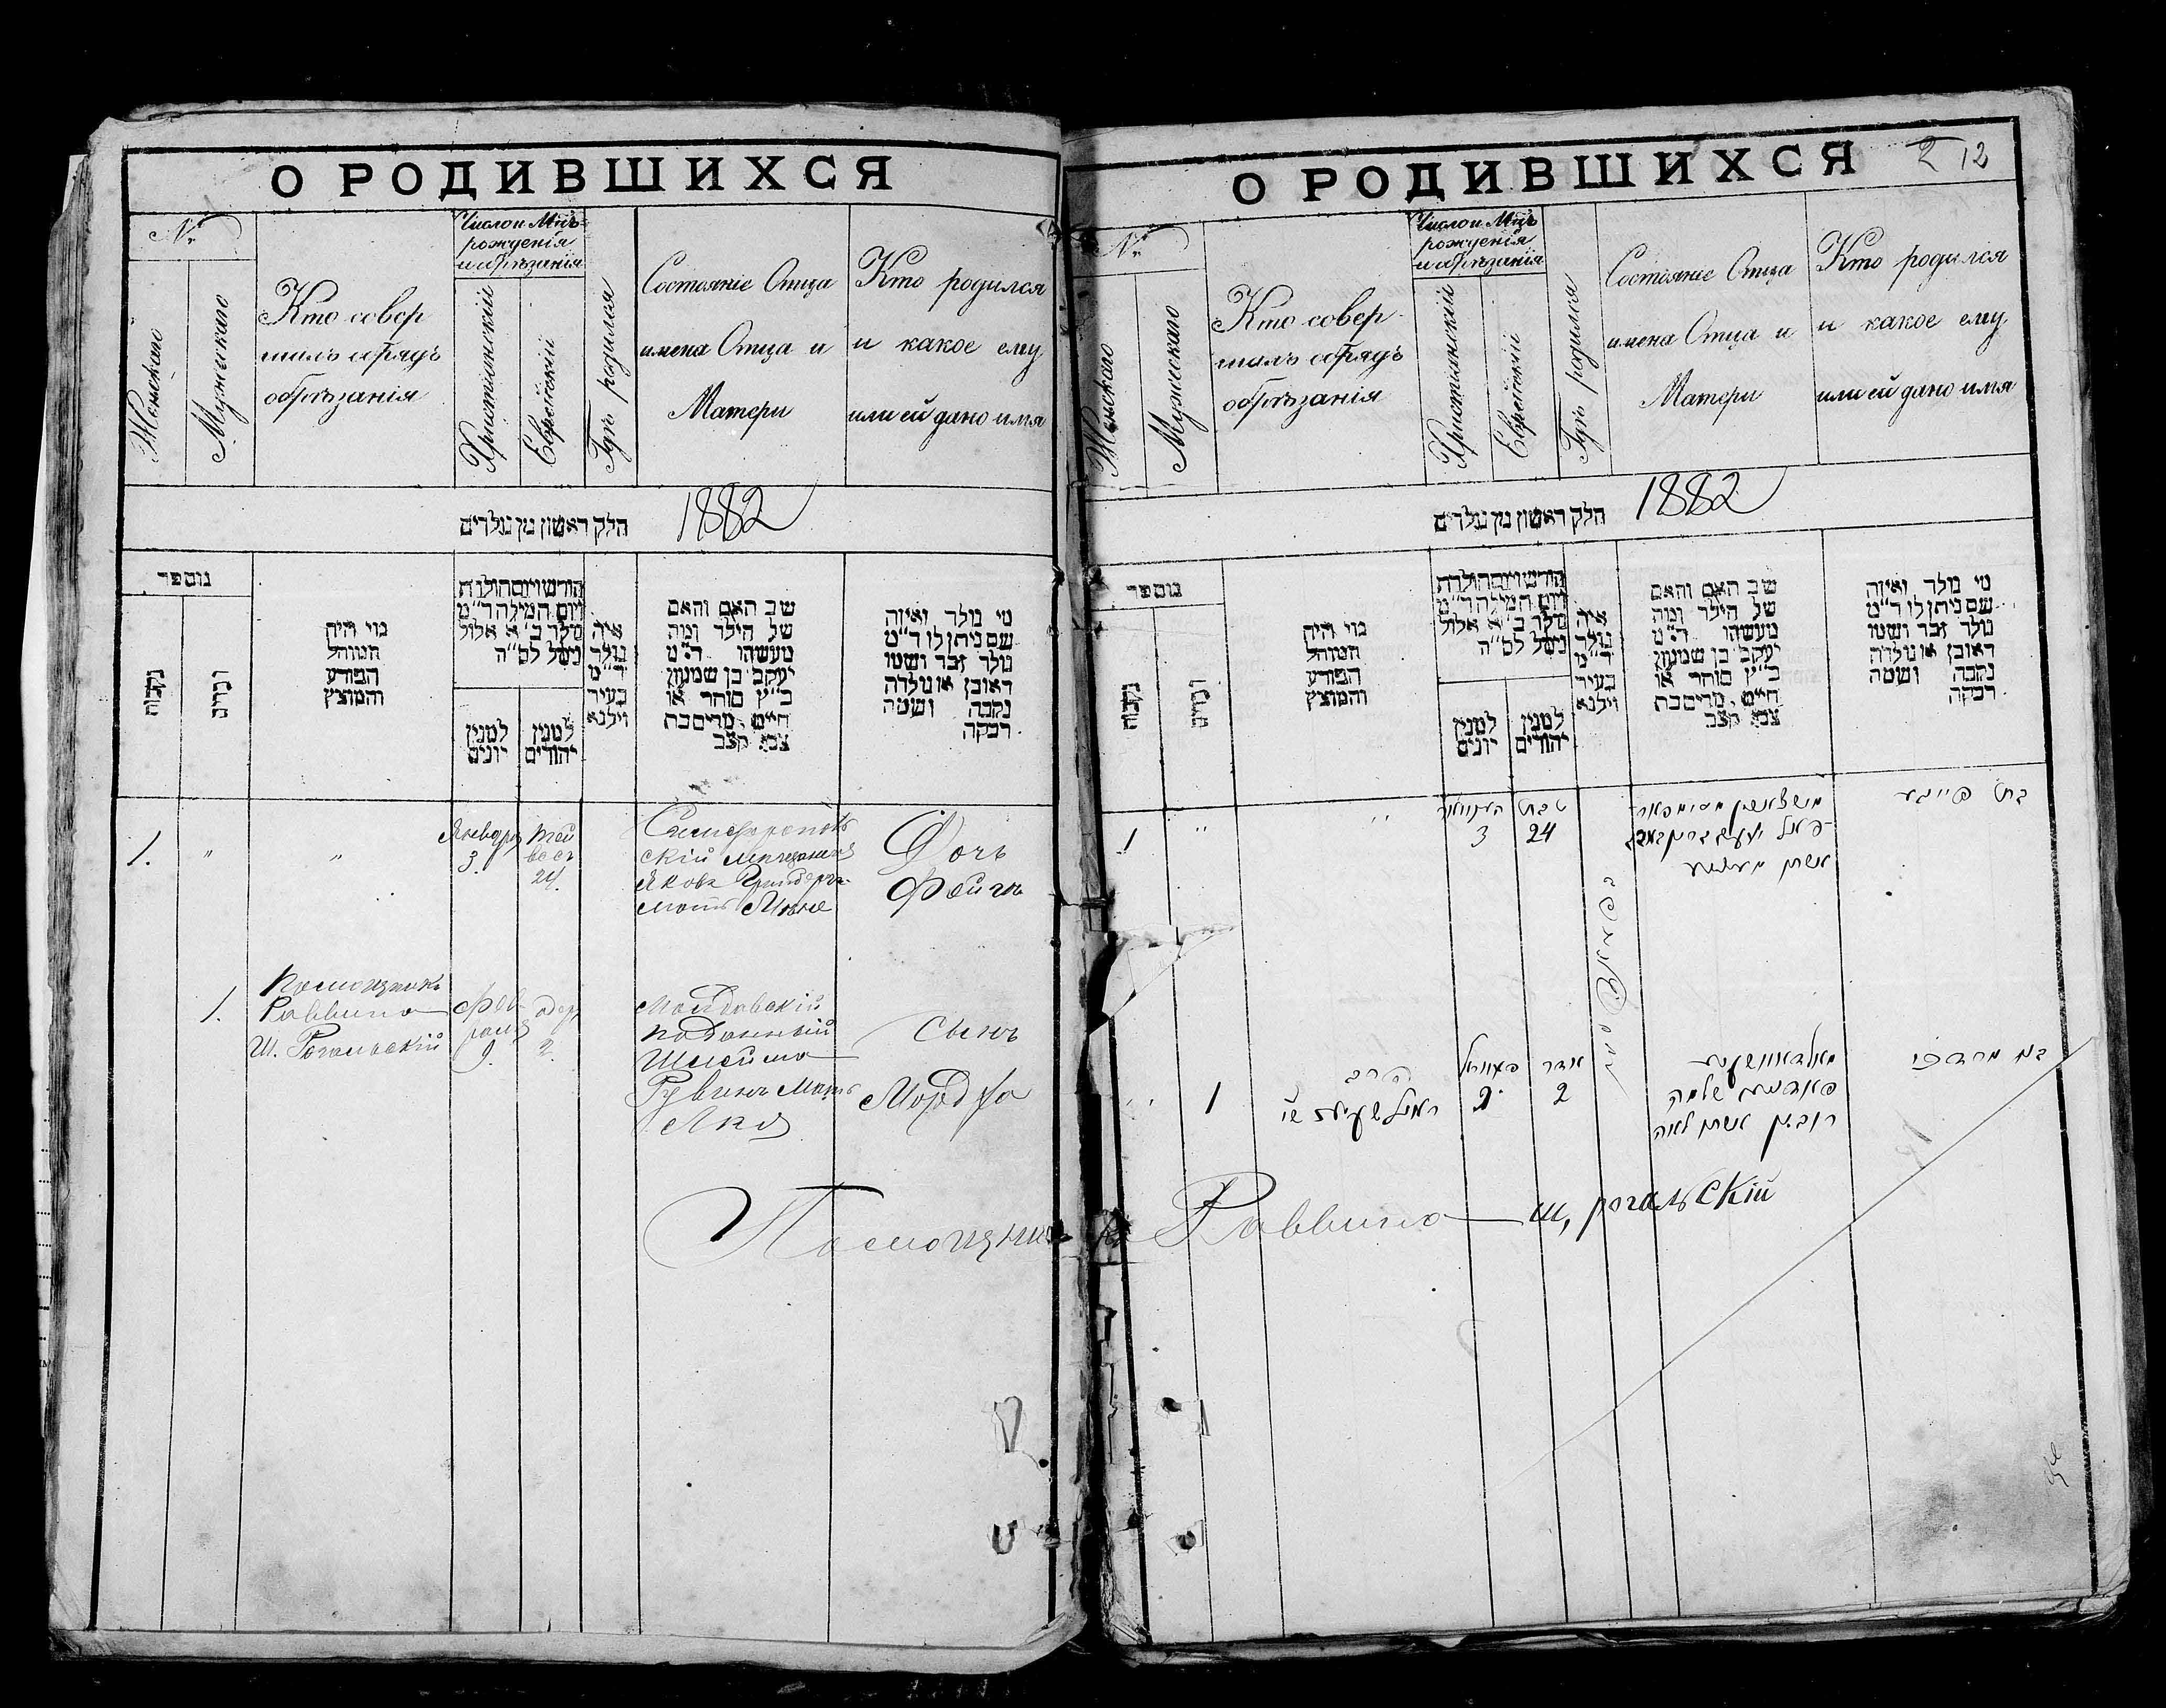 О РОДИВШИХСЯ
№
Женскаго
Мужескаго
Кто совер
шалъ обрядъ
обрѣзанія
Число и Мцъ
рожденія
и обрѣзанія
Христіянскій
Еврейскій
Гдѣ родился
Состояніе Отца
имена Отца и
Матери
Кто родился
и какое ему
или ей дано имя
חלק ראשון מן נולדים
1882
נומפר
נקבות
זכרים
מי היה
המוהל
הפורע
והמוצץ
חודש ויום הולדת
ויום המילה ד״מ
נולד ב׳ א אלול
נימל לס״ה
למנין
יונים
למנין
יהודים
איה
נולד
ד״מ
בעיר
וילנא
שב האם והאם
של הילד ומה
מעשהו ד״מ
יעקב בן שמעון
כ״ץ סוחר או
חייט, מרים בת
צבי קצב
מי נולד ואיזה
שם ניתן לו ד״מ
נולד זכר ושמו
ראובן או נולדה
נקבה ושמה
רבקה
1.
"
"
Января
3.
Тей
весъ
24.
Симферополь
скій мѣщанинъ
Яковъ
мать
Дочь
Фейга
1.
Помощникъ
Раввина
Ш. Рогальскій
Фев
раля
9.
Адеръ
2.
Молдавскій
подданный
Шлейма
Рувинъ Мать
Лея
Сынъ
Мордха
О РОДИВШИХСЯ
2 12
№
Женскаго
Мужескаго
Кто совер
шалъ обрядъ
обрѣзанія
Число и Мцъ
рожденія
и обрѣзанія
Христіянскій
Еврейскій
Гдѣ родился
Состояніе Отца
имена Отца и
Матери
Кто родился
и какое ему
или ей дано имя
חלק ראשון מן נולדים
1882
נומפר
נקבות
זכרים
מי היה
המוהל
הפורע
והמוצץ
חודש ויום הולדת
ויום המילה ד״מ
נולד ב׳ א אלול
נימל לס״ה
למנין
יונים
למנין
יהודים
איה
נולד
ד״מ
בעיר
וילנא
שב האם והאם
של הילד ומה
מעשהו ד״מ
יעקב בן שמעון
כ״ץ סוחר או
חייט, מרים בת
צבי קצב
מי נולד ואיזה
שם ניתן לו ד״מ
נולד זכר ושמו
ראובן או נולדה
נקבה ושמה
רבקה
1
"
"
3
טבת
24
אשתו
בת פייגע
"
1
הרב
9
אדר
2
שלמה
רובין אשתו לאה
בן מרדכי
Помощникъ Раввина Ш, рогальскій